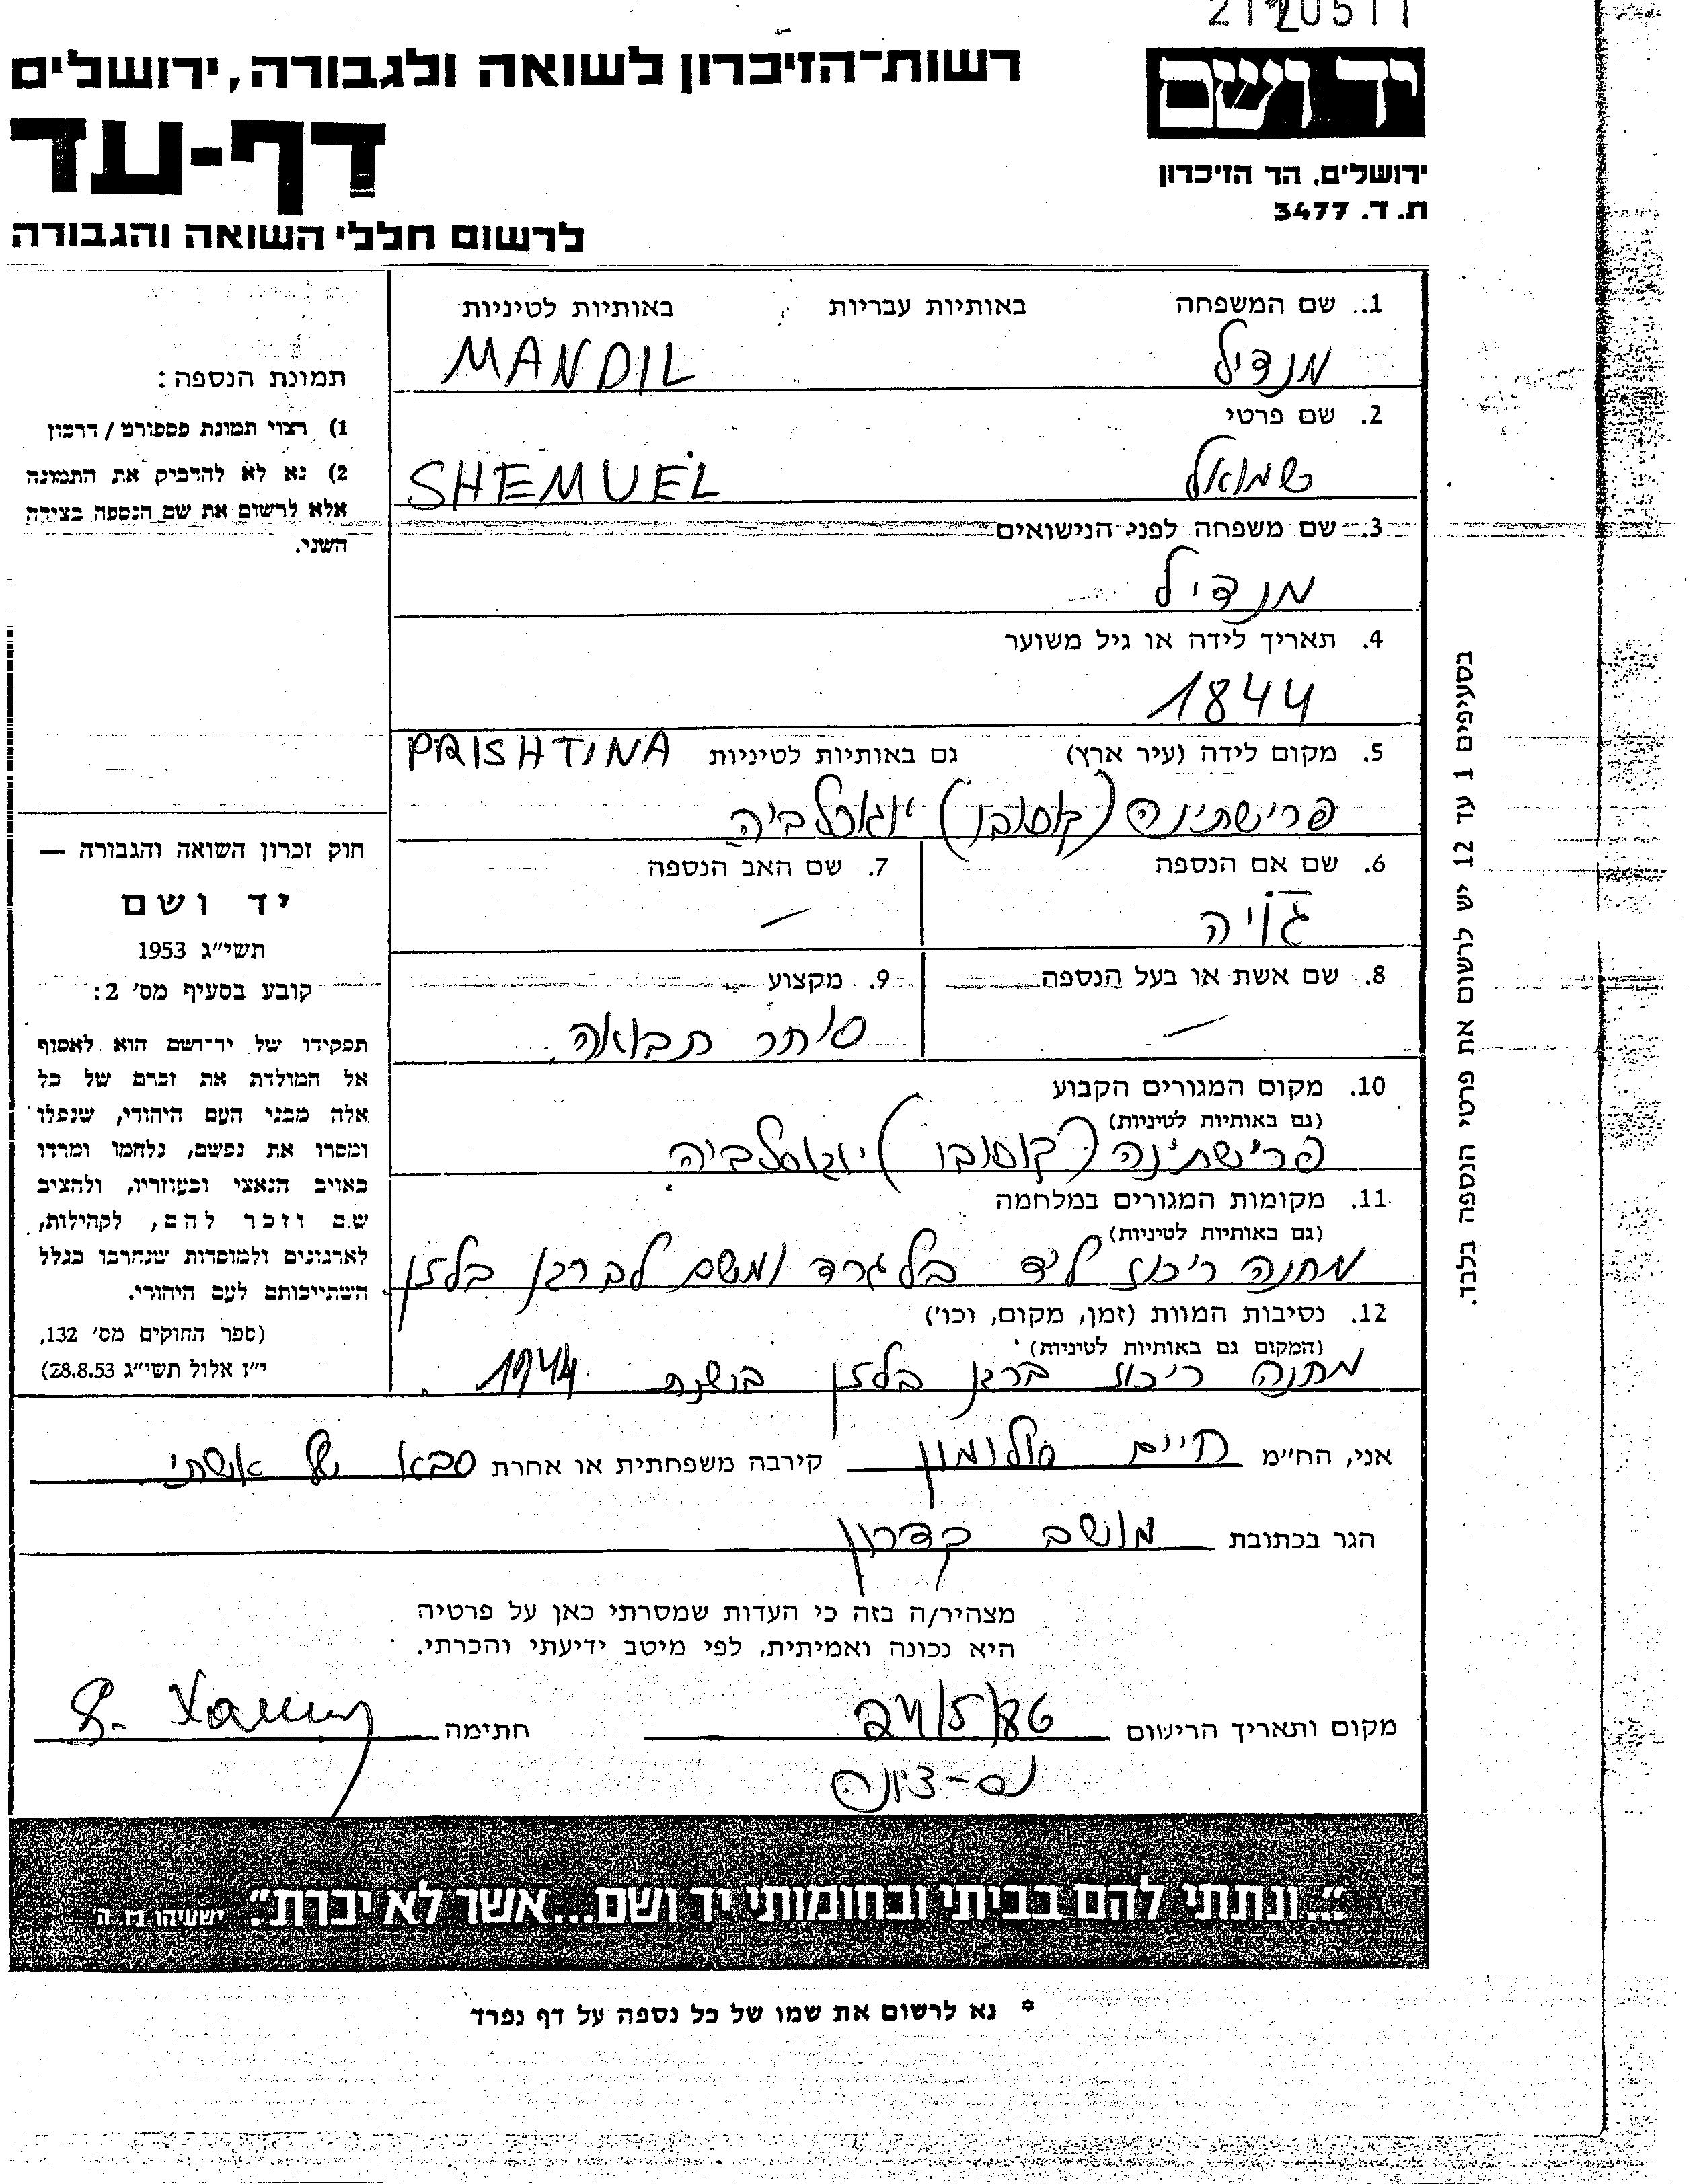 רשות־הזיכרון לשואה ולגבורה, ירושלים
דף-עד
לרשום חללי השואה והגבורה
יד ושם
ירושלים, הר הזיכרון
ת. ד. 3477
1. שם המשפחה באותיות עבריות באותיות לטיניות
מנדיל MANDIL
2. שם פרטי
שמואל SHEMUEL
3. שם משפחה לפני הנישואים
מנדיל
4. תאריך לידה או גיל משוער
1844
5. מקום לידה (עיר ארץ) גם באותיות לטיניות PRISHTINA
פרישתינה (קוסובו) יוגוסלביה
6. שם אם הנספה
ג'ויה
7. שם האב הנספה
—
8. שם אשת או בעל הנספה
—
9. מקצוע
סוחר תבואה
10. מקום המגורים הקבוע
(גם באותיות לטיניות)
פרישתינה (קוסובו) יוגוסלביה
11. מקומות המגורים במלחמה
(גם באותיות לטיניות)
מחנה ריכוז ליד בלגרד ומשם לברגן בלזן
12. נסיבות המוות (זמן, מקום, וכו')
(המקום גם באותיות לטיניות)
מחנה ריכוז ברגן בלזן בשנת 1944.
תמונת הנספה:
1) רצוי תמונת פספורט / דרכון
2) נא לא להדביק את התמונה
אלא לרשום את שם הנספה בצידה
השני.
חוק זכרון השואה והגבורה —
יד ושם
תשי״ג 1953
קובע בסעיף מס' 2:
תפקידו של יד־ושם הוא לאסוף
אל המולדת את זכרם של כל
אלה מבני העם היהודי, שנפלו
ומסרו את נפשם, נלחמו ומרדו
באויב הנאצי ובעוזריו, ולהציב
שם וזכר להם, לקהילות,
לארגונים ולמוסדות שנחרבו בגלל
השתייכותם לעם היהודי.
(ספר החוקים מס' 132,
י״ז אלול תשי״ג 28.8.53)
בסעיפים 1 עד 12 יש לרשום את פרטי הנספה בלבד.
אני, הח״מ חיים סלומון קירבה משפחתית או אחרת סבא של אשתי
הגר בכתובת מושב קדרון
מצהיר/ה בזה כי העדות שמסרתי כאן על פרטיה
היא נכונה ואמיתית, לפי מיטב ידיעתי והכרתי.
מקום ותאריך הרישום 24/5/86 חתימה
נס-ציונה
״...ונתתי להם בביתי ובחומותי יד ושם...אשר לא יכרת״. ישעיהו נו ה
* נא לרשום את שמו של כל נספה על דף נפרד